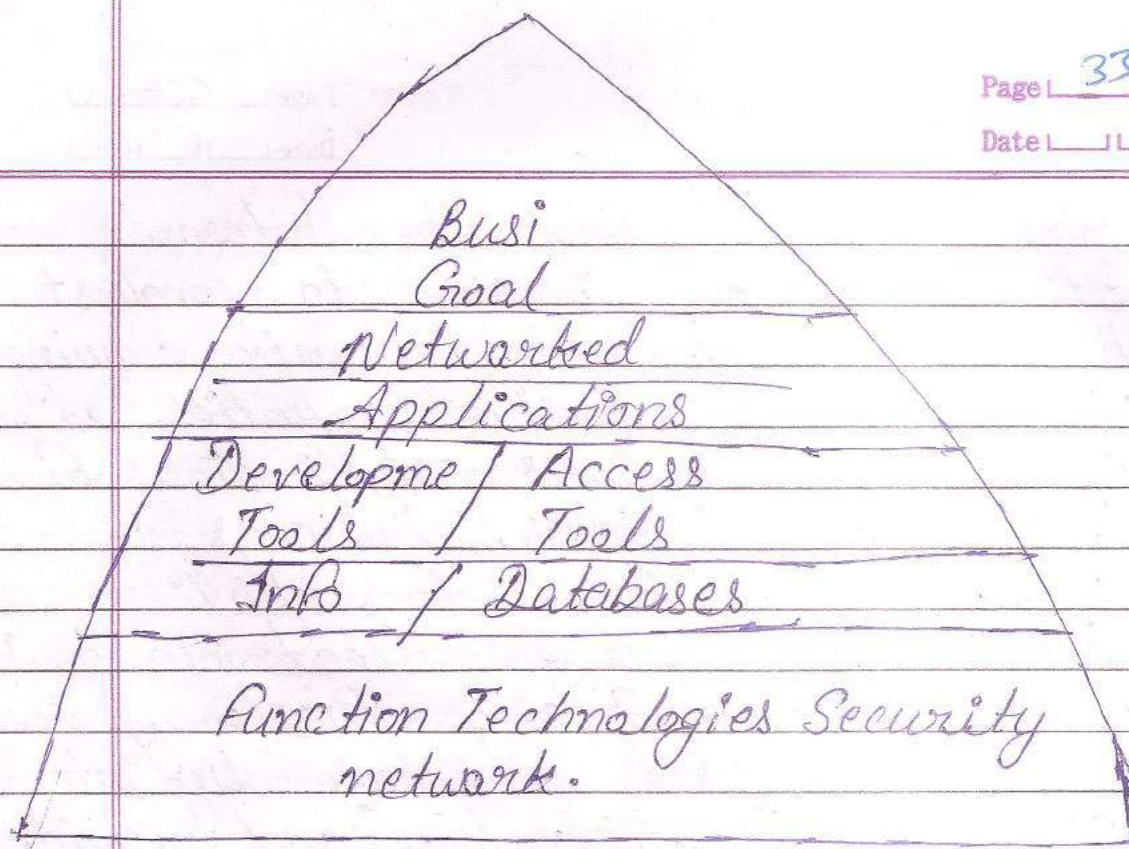 Page 33
Date
Busi
Goal
Networked
Applications
Developme / Access
Tools / Tools
Info / Databases
Function Technologies Security
network.